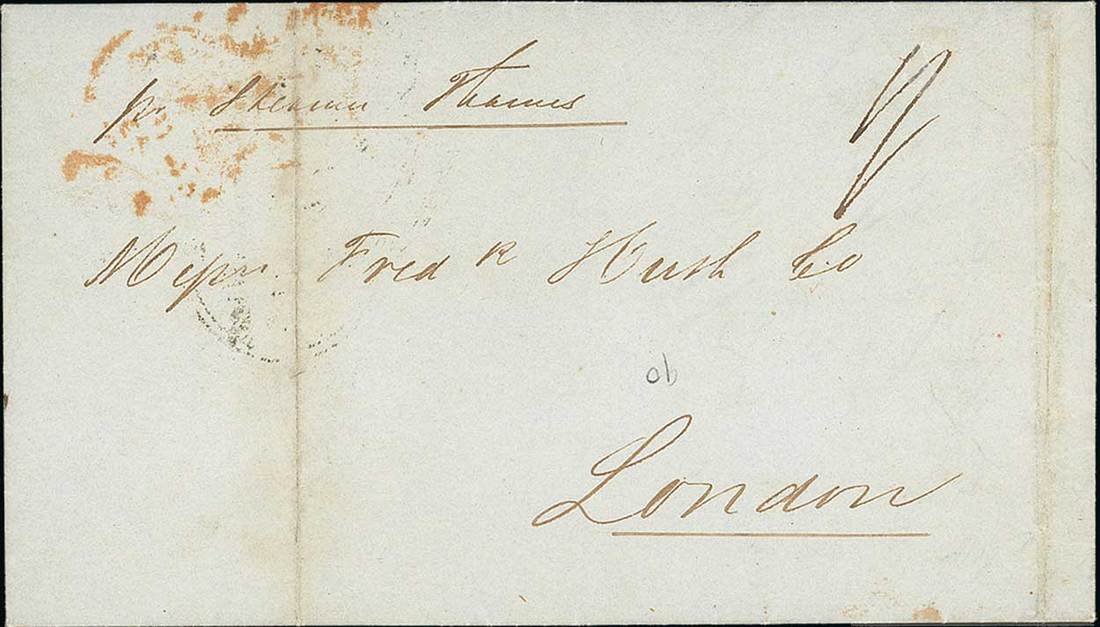 pr Steamer Thames
Messrs. Fred k Huth Co
ob
London